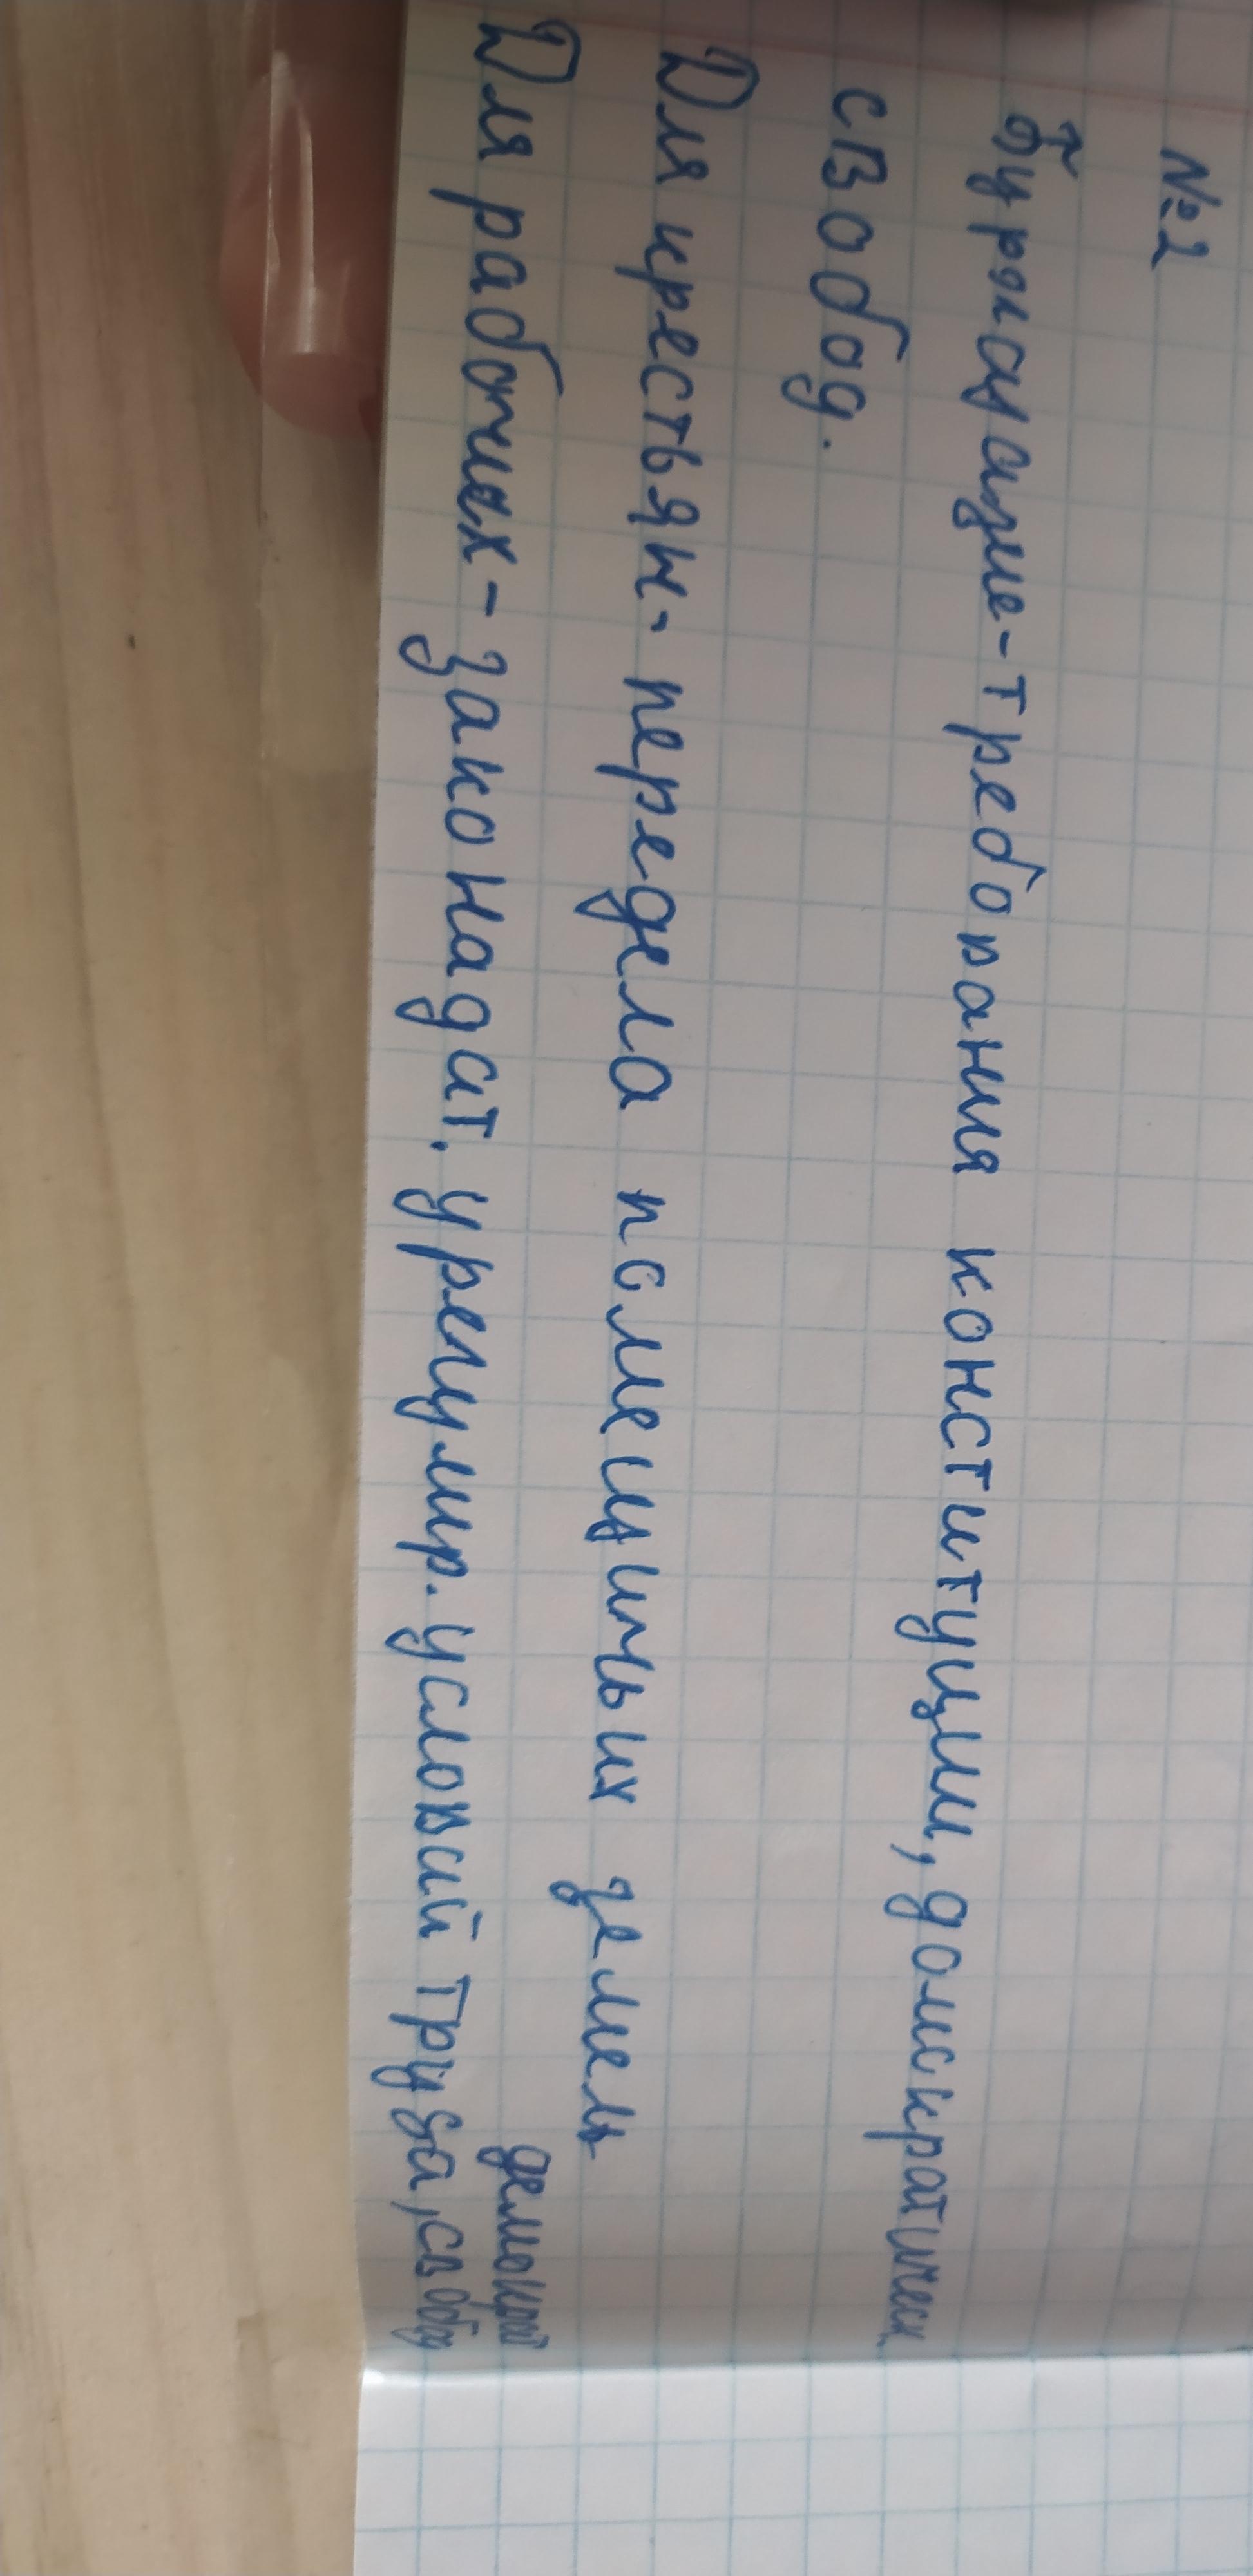 №2
Буржуазие-требования конституции, домскратическ
свобод.
Для крестьян- передела помещичьих земель
демократ
Для рабочих-законадат. урегулир. условий труда, свобод